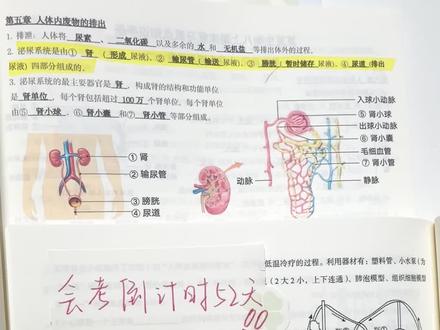 第五章 人体内废物的排出
1. 排泄：人体将 尿素 、 二氧化碳 以及多余的 水 和 无机盐 等排出体外的过程。
2. 泌尿系统是由① 肾 （ 形成 尿液）、② 输尿管（ 输送 尿液）、③ 膀胱（ 暂时储存 尿液）、④ 尿道（ 排出
尿液）四部分组成的。
3. 泌尿系统的最主要器官是 肾 ，构成肾的结构和功能单位
是 肾单位 ，每个肾包括超过 100万 个肾单位。每个肾单位
由⑤ 肾小球 、⑥ 肾小囊 和⑦ 肾小管 等部分组成。
① 肾
② 输尿管
③ 膀胱
④ 尿道
动脉
入球小动脉
⑤ 肾小球
出球小动脉
⑥ 肾小囊
毛细血管
⑦ 肾小管
静脉
会考倒计时52天
低温冷疗的过程。利用器材有：塑料管、小水泵（为
（2大2小，上下连通）、肺泡模型、组织细胞模型